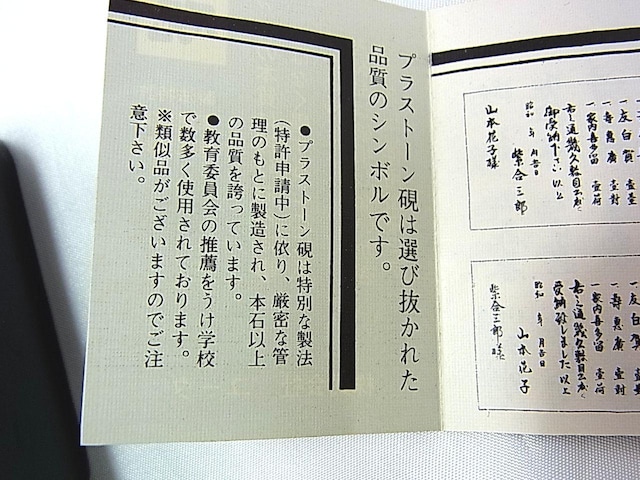 プラストーン硯は選び抜かれた
品質のシンボルです。
●プラストーン硯は特別な製法
(特許申請中)に依り、厳密な管
理のもとに製造され、本石以上
の品質を誇っています。
●教育委員会の推薦をうけ学校
で数多く使用されております。
※類似品がございますのでご注
意下さい。
一友白賀 壹臺
一寿恵廣 壹対
一家内喜多留 壹荷
右之通幾久敷目出度く
御受納下さい 以上
昭和 年 月 吉日
紫合三郎
山本花子様
一友白賀 壹臺
一寿恵廣 壹対
一家内喜多留 壹荷
右之通幾久敷目出度く
受納致しました 以上
昭和 年 月 吉日
山本花子
紫合三郎様